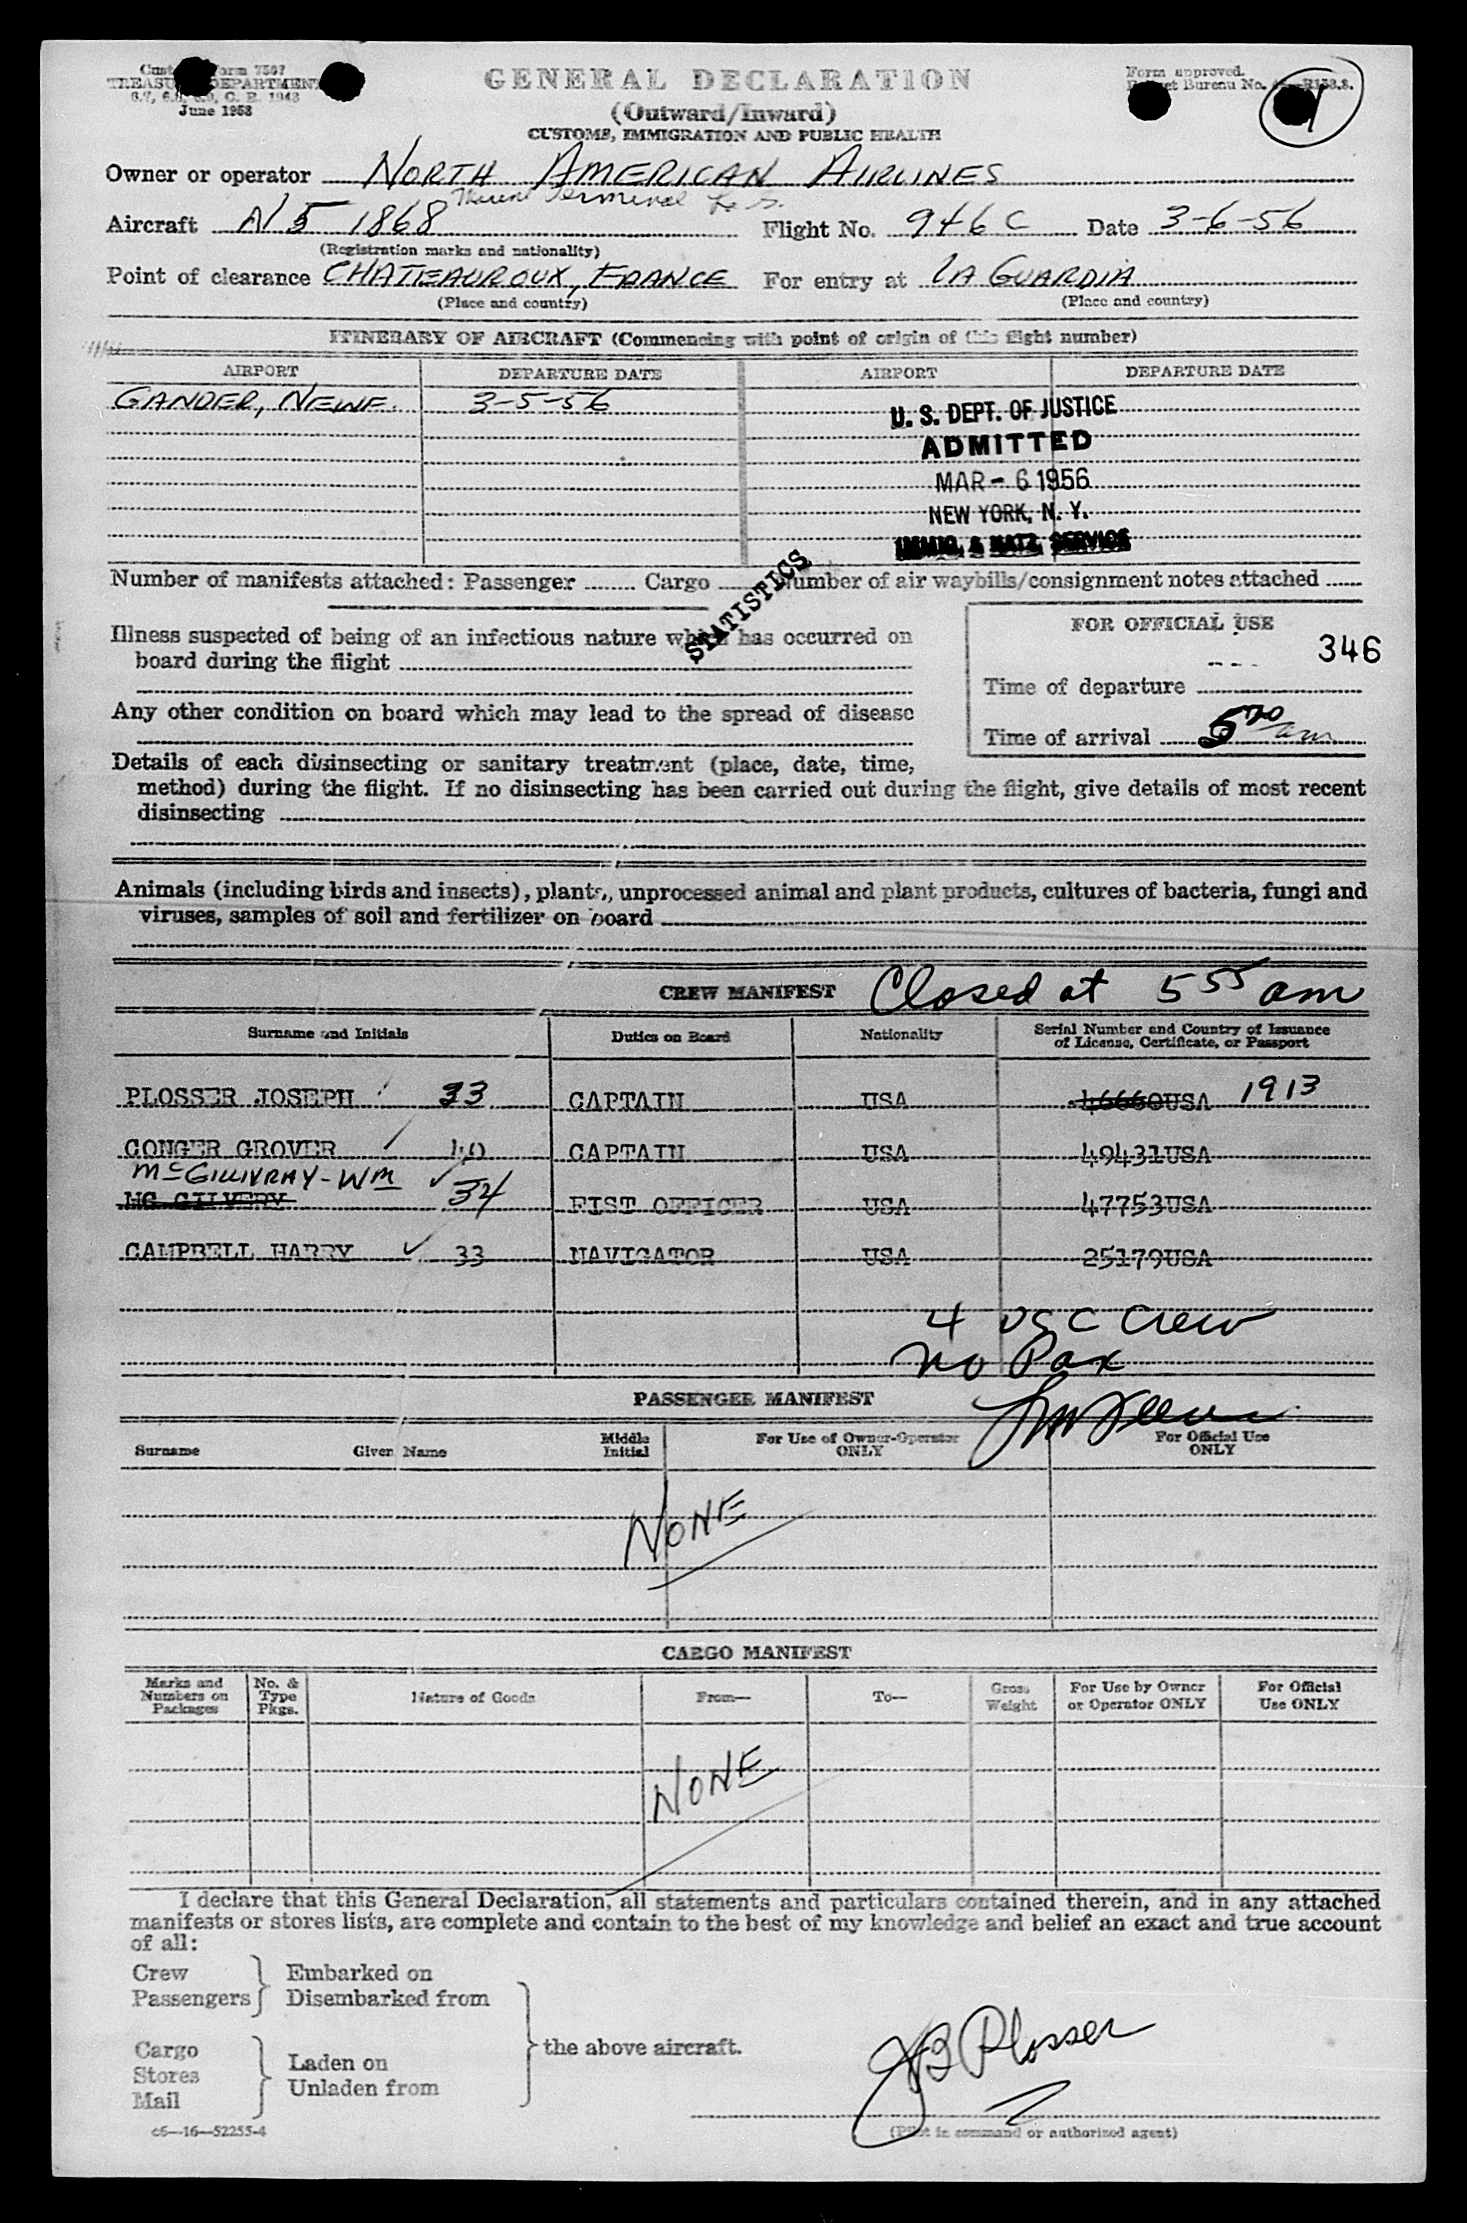 Customs Form 7507
TREASURY DEPARTMENT
6.7, 6.8, 6.9, C. R. 1943
June 1953
GENERAL DECLARATION
(Outward/Inward)
CUSTOMS, IMMIGRATION AND PUBLIC HEALTH
Form approved.
Budget Bureau No.
1
Owner or operator NORTH AMERICAN AIRLINES
Marine Terminal
Aircraft N 5 1868 Flight No. 946 C Date 3-6-56
(Registration marks and nationality)
Point of clearance CHATEAUROUX, FRANCE For entry at LA GUARDIA
(Place and country) (Place and country)
ITINERARY OF AIRCRAFT (Commencing with point of origin of this flight number)
AIRPORT DEPARTURE DATE AIRPORT DEPARTURE DATE
GANDER, NEWF. 3-5-56
U. S. DEPT. OF JUSTICE
ADMITTED
MAR - 6 1956
NEW YORK, N. Y.
IMMIG. & NATZ. SERVICE
STATISTICS
Number of manifests attached: Passenger ........ Cargo ........ Number of air waybills/consignment notes attached ......
Illness suspected of being of an infectious nature which has occurred on
board during the flight
FOR OFFICIAL USE
346
Time of departure
Any other condition on board which may lead to the spread of disease
Time of arrival 5 20 am
Details of each disinsecting or sanitary treatment (place, date, time,
method) during the flight. If no disinsecting has been carried out during the flight, give details of most recent
disinsecting
Animals (including birds and insects), plants, unprocessed animal and plant products, cultures of bacteria, fungi and
viruses, samples of soil and fertilizer on board
CREW MANIFEST Closed at 5 55 am
Surname and Initials Duties on Board Nationality Serial Number and Country of Issuance
of License, Certificate, or Passport
PLOSSER JOSEPH 33 CAPTAIN USA 46660USA 1913
CONGER GROVER 40 CAPTAIN USA 49431USA
McGILLIVRAY-Wm
MC GILVERY 34 FIST OFFICER USA 47753USA
CAMPBELL HARRY 33 NAVIGATOR USA 25179USA
4 USC Crew
no Pax
PASSENGER MANIFEST
Surname Given Name Middle Initial For Use of Owner-Operator ONLY For Official Use ONLY
NONE
CARGO MANIFEST
Marks and Numbers on Packages No. & Type Pkgs. Nature of Goods From— To— Gross Weight For Use by Owner or Operator ONLY For Official Use ONLY
NONE
I declare that this General Declaration, all statements and particulars contained therein, and in any attached
manifests or stores lists, are complete and contain to the best of my knowledge and belief an exact and true account
of all:
Crew Embarked on
Passengers Disembarked from
the above aircraft.
Cargo
Stores Laden on
Mail Unladen from
JB Plosser
c6—16—52255-4
(Pilot in command or authorized agent)